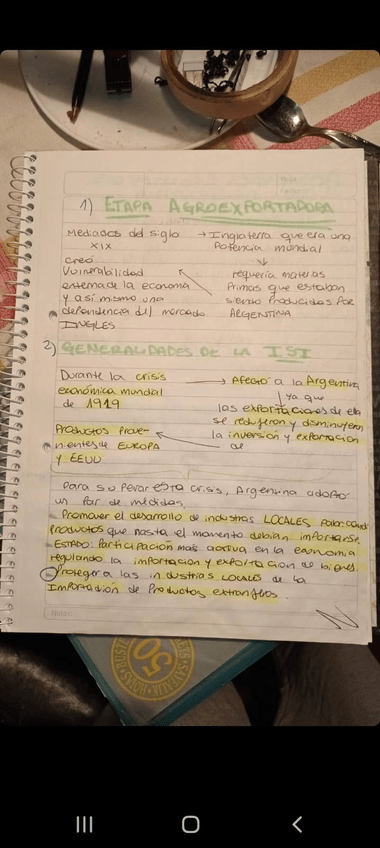 1) ETAPA AGROEXPORTADORA
Mediados del siglo XIX → Inglaterra que era una Potencia mundial
↓
requeria materias Primas que estaban siendo Producidas Por ARGENTINA
creó Vulnerabilidad externa de la economia y asi mismo una dependencia del mercado INGLES
2) GENERALIDADES DE LA ISI
Durante la crisis económica mundial de 1919 → Afectó a la Argentina
↓ ya que
las exportaciones de ella se redujeron y disminuyeron la inversion y exportacion de
Productos Provenientes de EUROPA y EEUU
Para superar esta crisis, Argentina adopto un Par de medidas.
Promover el desarrollo de industrias LOCALES
Productos que hasta el momento debian importarse.
ESTADO: Participacion mas activa en la economia
regulando la importacion y exportacion de bienes.
Proteger a las industrias LOCALES de la
Importación de Productos extranjeros.